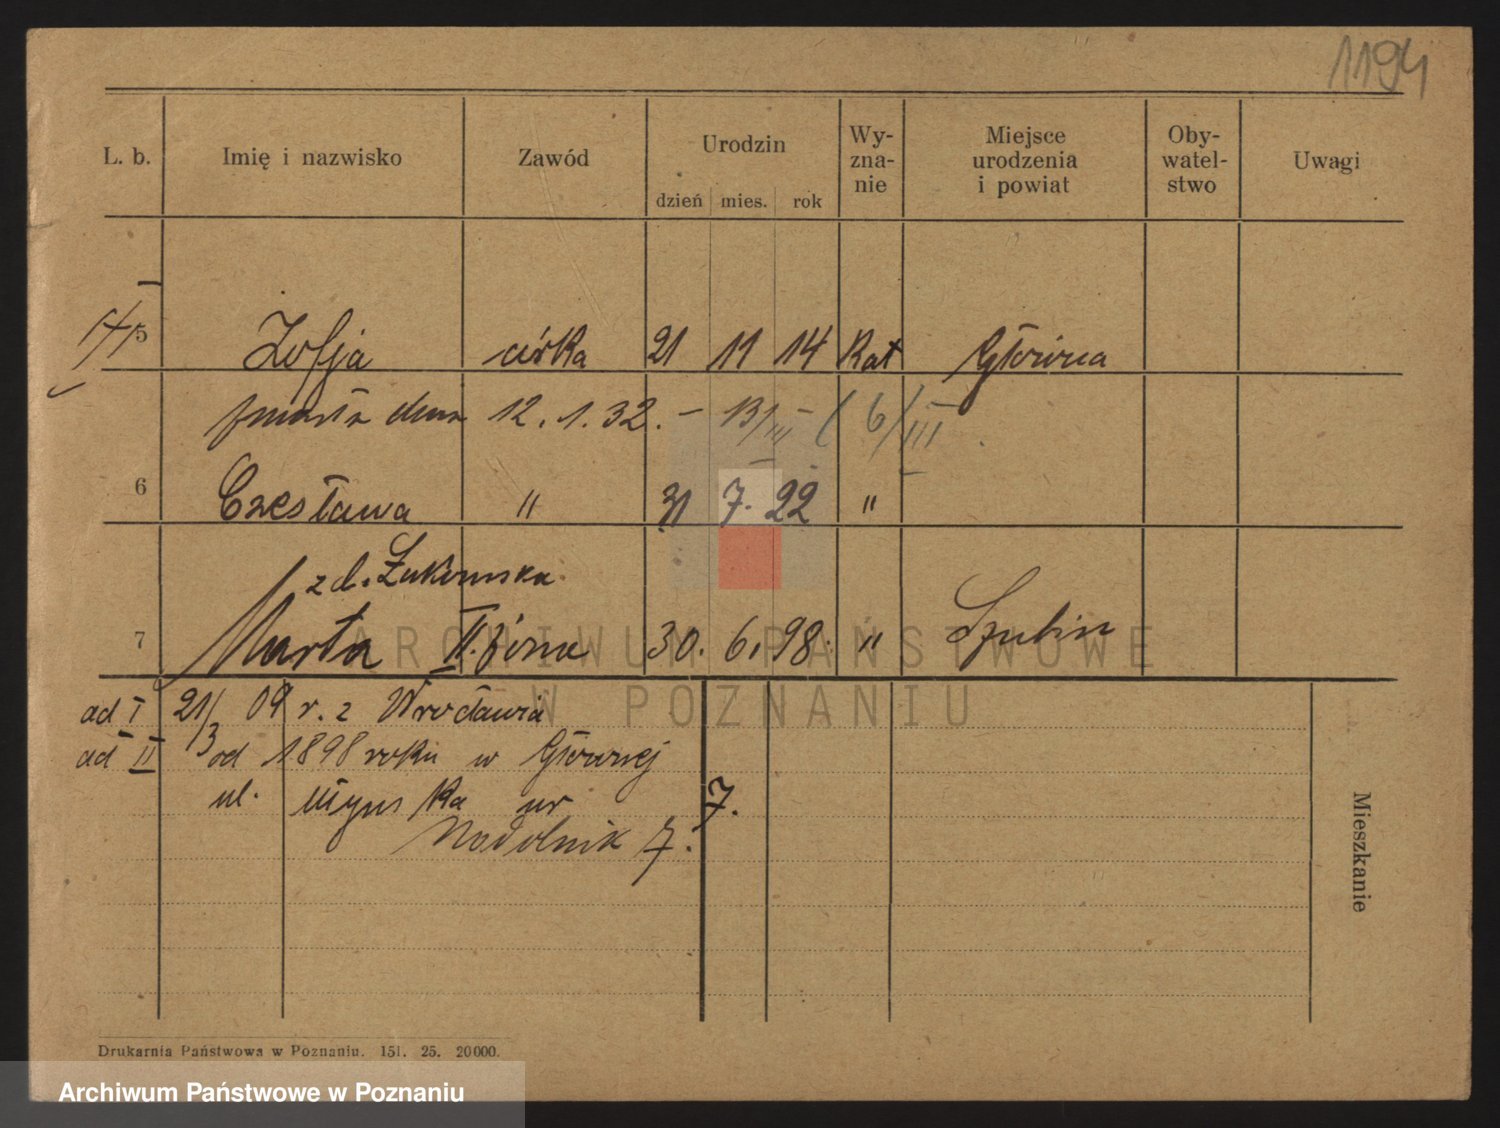 1194
L. b. Imię i nazwisko Zawód Urodzin Wy-zna-nie Miejsce urodzenia i powiat Oby-watel-stwo Uwagi
dzień mies. rok
5 Zofja córka 21 11 14 Kat Główna
zmarła dnia 12. 1. 32. – 13/III – ( 6/III
6 Czesława " 31 7. 22 "
zd. Żukowska
7 Marta II. żona 30. 6. 98. " Szubin
ARCHIWUM PAŃSTWOWE
W POZNANIU
ad I 21/3 09 r. z Wrocławia
ad II od 1898 roku w Głównej
ul. nr 7.
Nadolnik 7.
Mieszkanie
Drukarnia Państwowa w Poznaniu. 151. 25. 20000.
Archiwum Państwowe w Poznaniu